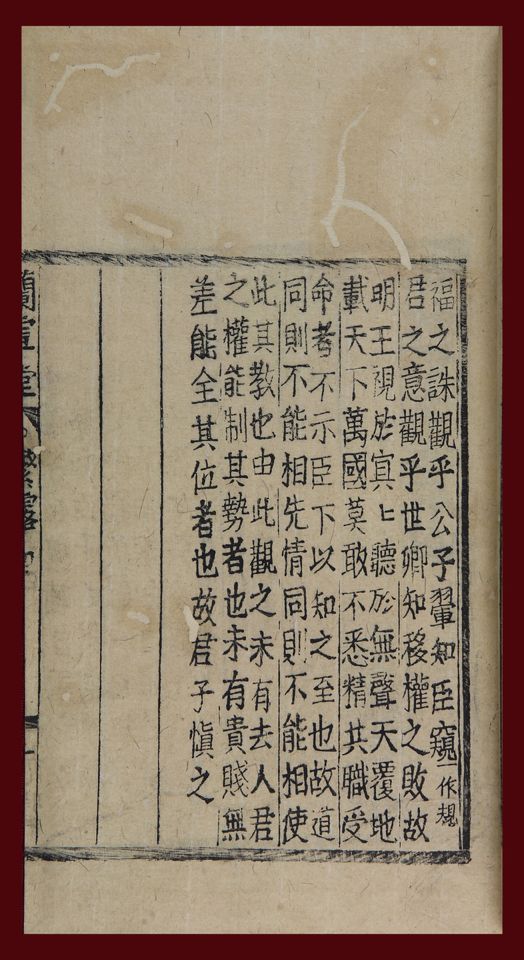 福之誅觀乎公子翬知臣窺一作規
君之意觀乎世卿知移權之敗故
明王視於冥匕聽於無聲天覆地
載天下萬國莫敢不悉精其職受
命者不示臣下以知之至也故道
同則不能相先情同則不能相使
此其教也由此觀之未有去人君
之權能制其勢者也未有貴賤無
差能全其位者也故君子慎之
蘭雪堂